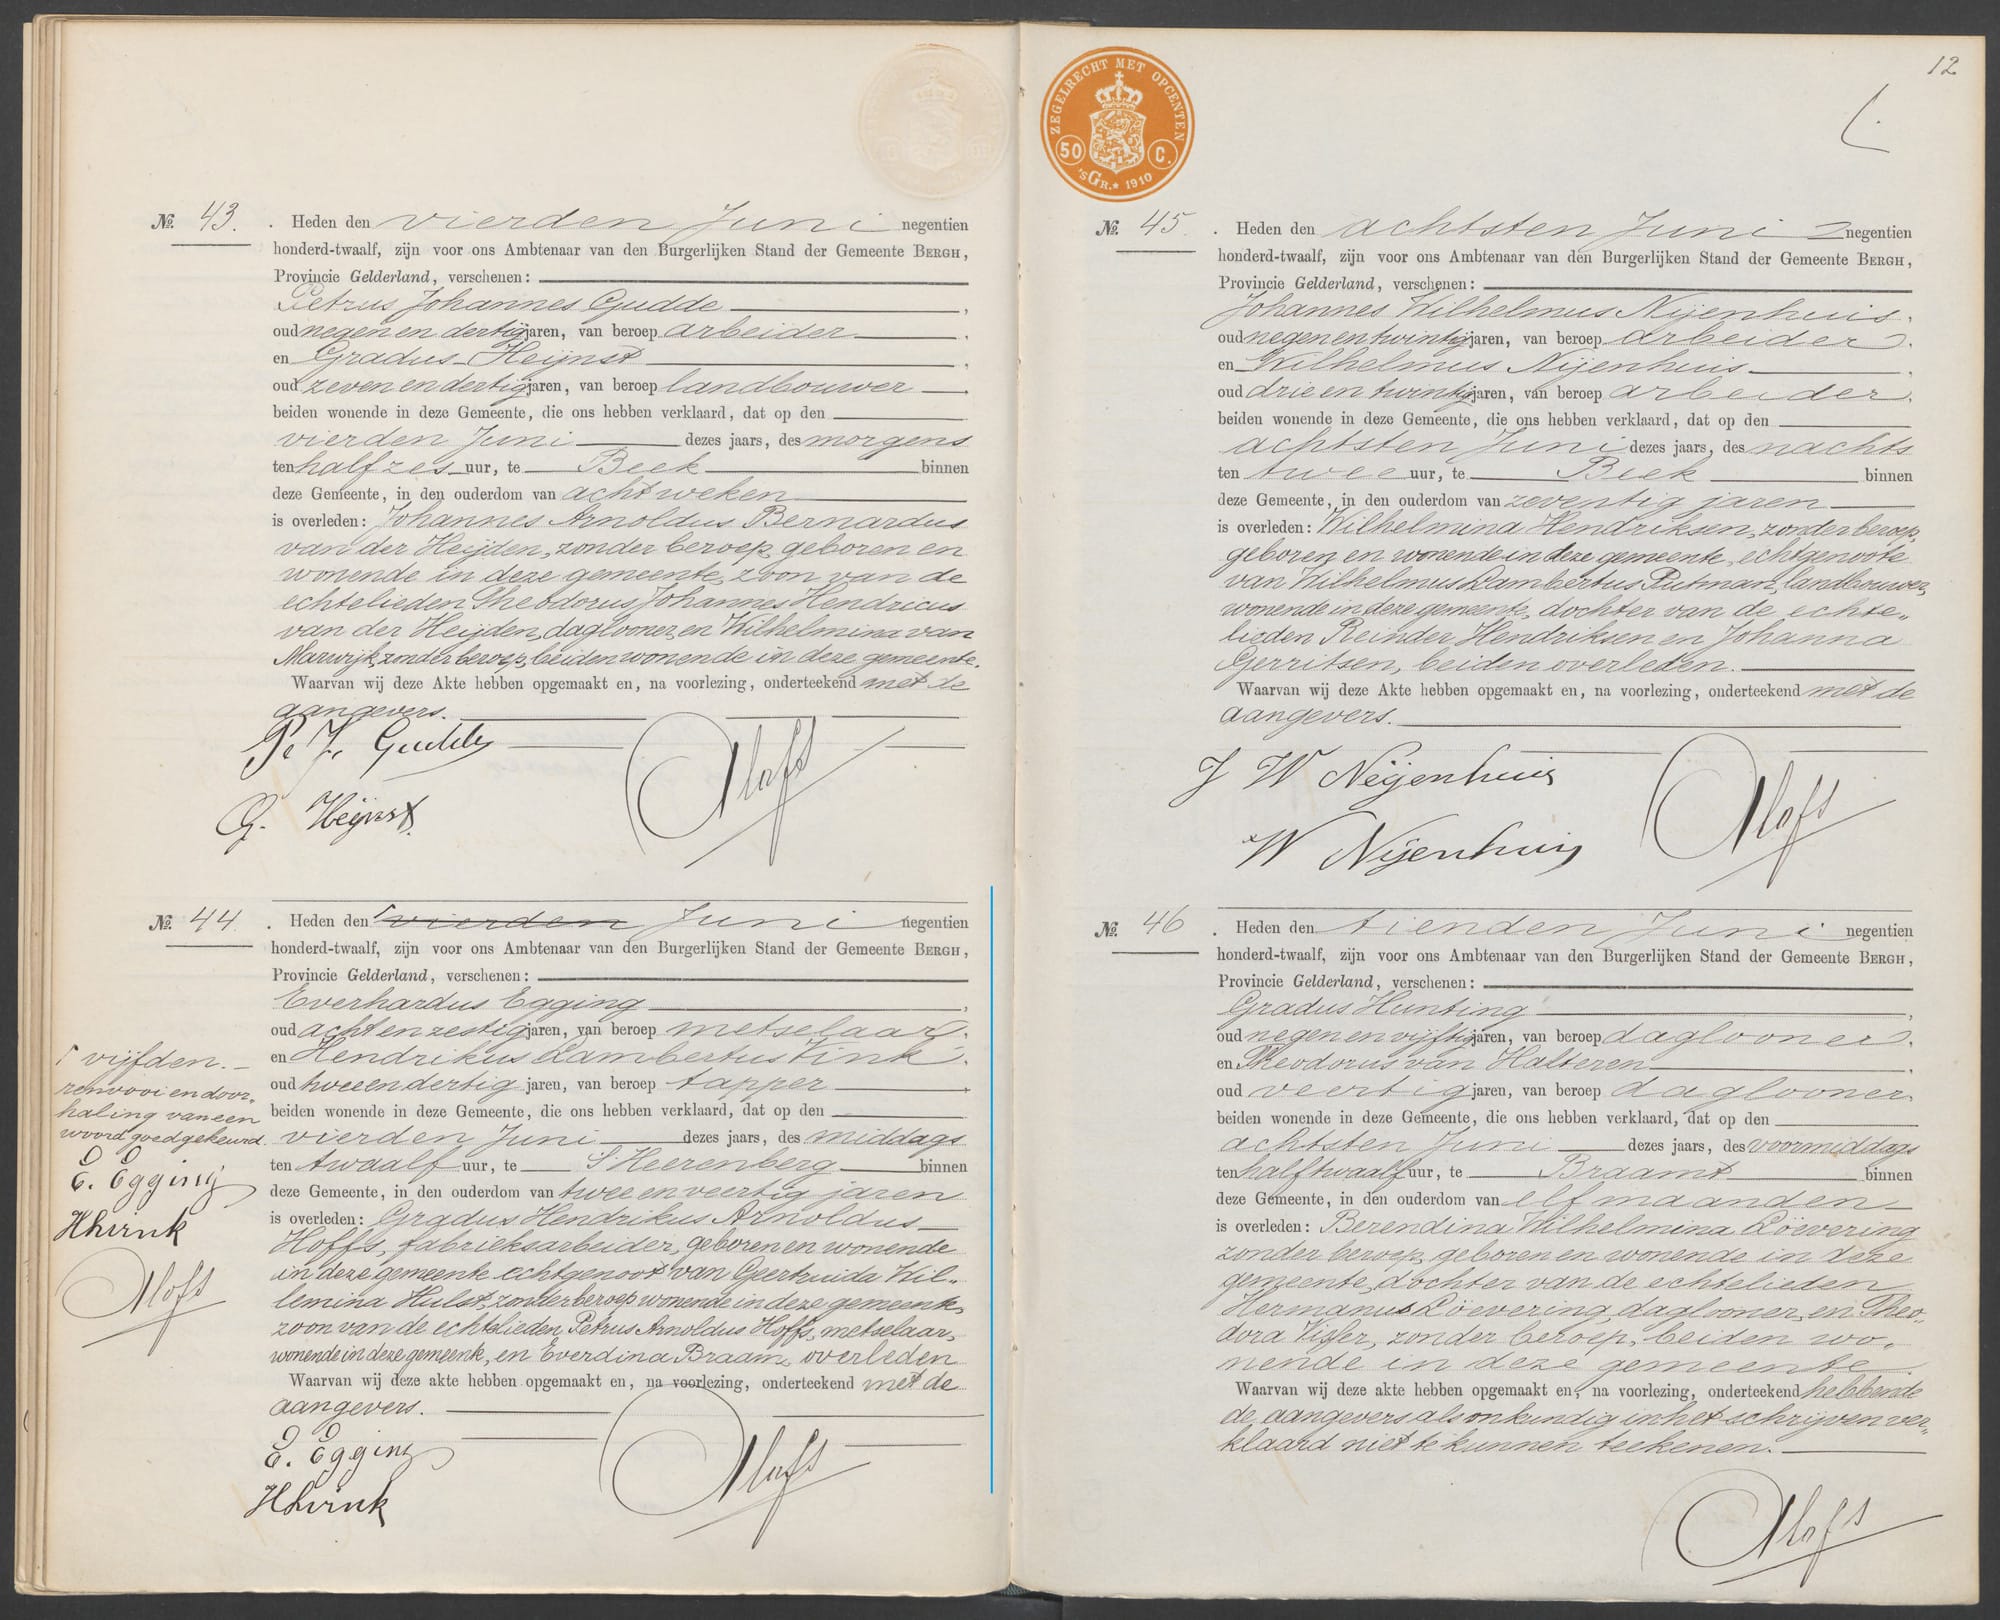 No. 43. Heden den vierden Juni negentien
honderd-twaalf, zijn voor ons Ambtenaar van den Burgerlijken Stand der Gemeente BERGH,
Provincie Gelderland, verschenen:
Petrus Johannes Gudde,
oud negen en dertig jaren, van beroep arbeider,
en Gradus Heijnst,
oud zeven en dertig jaren, van beroep landbouwer,
beiden wonende in deze Gemeente, die ons hebben verklaard, dat op den
vierden Juni dezes jaars, des morgens
ten half zes uur, te Beek binnen
deze Gemeente, in den ouderdom van acht weken
is overleden: Johannes Arnoldus Bernardus
van der Heijden, zonder beroep, geboren en
wonende in deze gemeente, zoon van de
echtelieden Theodorus Johannes Hendricus
van der Heijden, daglooner, en Wilhelmina van
Marwijk, zonder beroep, beiden wonende in deze gemeente.
Waarvan wij deze Akte hebben opgemaakt en, na voorlezing, onderteekend met de
aangevers.
P. J. Gudde
G. Heijnst
Alofs
No. 44. Heden den vierden Juni negentien
honderd-twaalf, zijn voor ons Ambtenaar van den Burgerlijken Stand der Gemeente BERGH,
Provincie Gelderland, verschenen:
Everhardus Egging,
oud acht en zestig jaren, van beroep metselaar,
en Hendrikus Lambertus Vink,
oud twee en dertig jaren, van beroep tapper,
beiden wonende in deze Gemeente, die ons hebben verklaard, dat op den
vierden Juni dezes jaars, des middags
ten twaalf uur, te S'Heerenberg binnen
deze Gemeente, in den ouderdom van twee en veertig jaren
is overleden: Gradus Hendrikus Arnoldus
Hoffs, fabrieksarbeider, geboren en wonende
in deze gemeente echtgenoot van Geertruida Wil„
lemina Hulst, zonder beroep wonende in deze gemeente,
zoon van de echtelieden Petrus Arnoldus Hoffs, metselaar,
wonende in deze gemeente, en Everdina Braam, overleden
Waarvan wij deze akte hebben opgemaakt en, na voorlezing, onderteekend met de
aangevers.
E. Egging
HLvink
Alofs
vijfden.
renvooi en door„
haling van een
woord goedgekeurd.
E. Egging
HLvink
Alofs
12
ZEGELRECHT MET OPCENTEN
50 C.
'sGR. 1910
No. 45. Heden den achtsten Juni negentien
honderd-twaalf, zijn voor ons Ambtenaar van den Burgerlijken Stand der Gemeente BERGH,
Provincie Gelderland, verschenen:
Johannes Wilhelmus Nijenhuis,
oud negen en twintig jaren, van beroep arbeider,
en Wilhelmus Nijenhuis,
oud drie en twintig jaren, van beroep arbeider,
beiden wonende in deze Gemeente, die ons hebben verklaard, dat op den
achtsten Juni dezes jaars, des nachts
ten twee uur, te Beek binnen
deze Gemeente, in den ouderdom van zeventig jaren
is overleden: Wilhelmina Hendriksen, zonder beroep,
geboren en wonende in deze gemeente, echtgenoote
van Wilhelmus Lambertus Putman, landbouwer,
wonende in deze gemeente, dochter van de echte„
lieden Reinder Hendriksen en Johanna
Gerritsen, beiden overleden.
Waarvan wij deze Akte hebben opgemaakt en, na voorlezing, onderteekend met de
aangevers.
J W Nijenhuis
W Nijenhuis
Alofs
No. 46. Heden den tienden Juni negentien
honderd-twaalf, zijn voor ons Ambtenaar van den Burgerlijken Stand der Gemeente BERGH,
Provincie Gelderland, verschenen:
Gradus Hunting,
oud negen en vijftig jaren, van beroep daglooner,
en Theodorus van Halteren,
oud veertig jaren, van beroep daglooner,
beiden wonende in deze Gemeente, die ons hebben verklaard, dat op den
achtsten Juni dezes jaars, des voormiddags
ten half twaalf uur, te Braamt binnen
deze Gemeente, in den ouderdom van elf maanden
is overleden: Berendina Wilhelmina Löevering
zonder beroep, geboren en wonende in deze
gemeente, dochter van de echtelieden
Hermanus Löevering, daglooner, en Theo„
dora Visser, zonder beroep, beiden wo„
nende in deze gemeente.
Waarvan wij deze akte hebben opgemaakt en, na voorlezing, onderteekend hebbende
de aangevers als onkundig in het schrijven ver„
klaard niet te kunnen teekenen.
Alofs